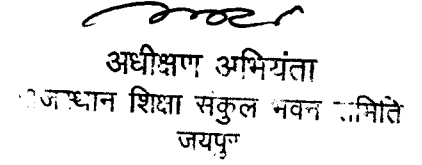 अधीक्षण अभियंता
राजस्थान शिक्षा संकुल भवन समिति
जयपुर